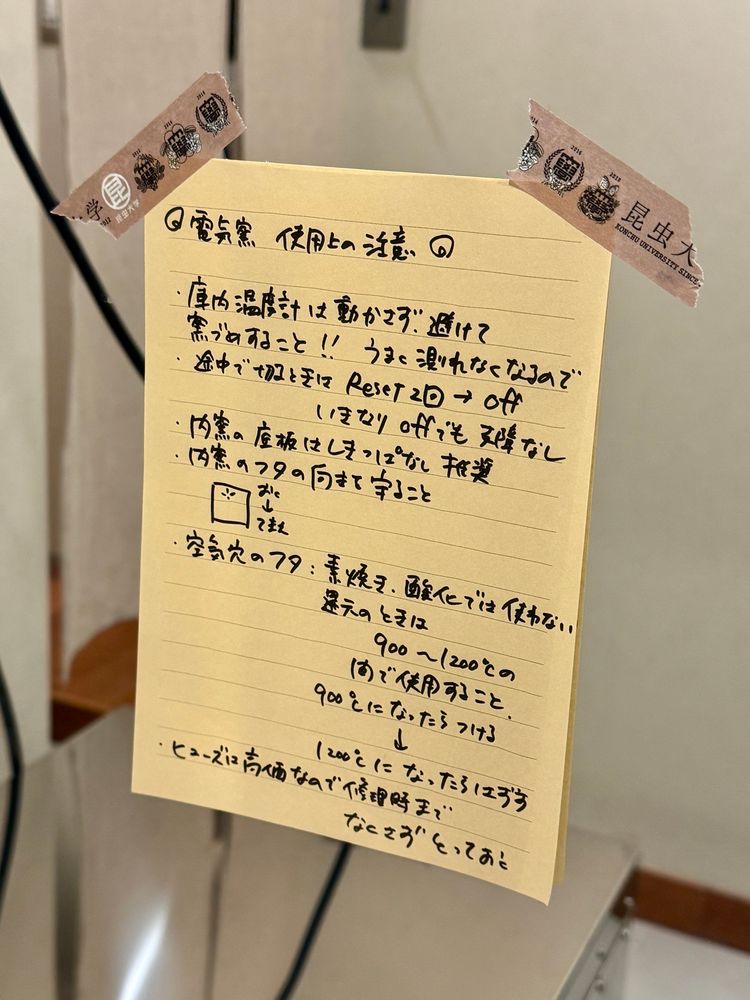 2018
2017
2012
大学
昆
昆虫大学
2016
2018
昆虫大
KONCHU UNIVERSITY SINCE
電気窯 使用上の注意
・庫内温度計は動かさず、避けて
窯づめすること!! うまく測れなくなるので
・途中で切るときは Reset 2回 → off
いきなり offでも 支障なし
・内窯の底板はしきっぱなし 推奨
・内窯のフタの向きを守ること
おく
↓
てまえ
・空気穴のフタ:素焼き、酸化では使わない
還元のときは
900 〜1200℃の
間で使用すること、
900℃になったらつける
↓
1200℃になったらはずす
・ヒューズは高価なので修理時まで
なくさずとっておく